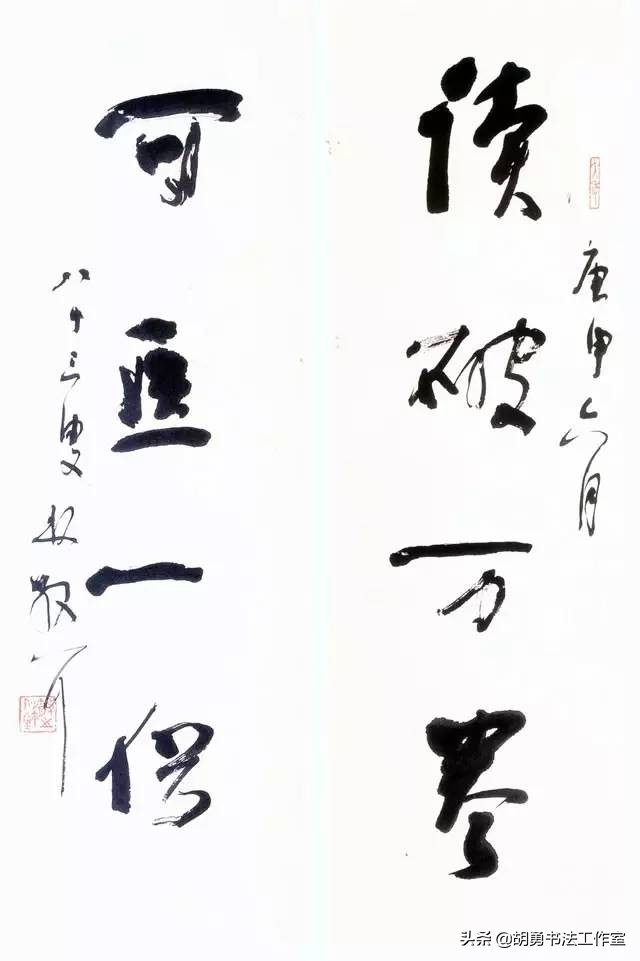 庚申六月
读破万卷
可医一俗
八十三叟林散耳
头条 @胡勇书法工作室